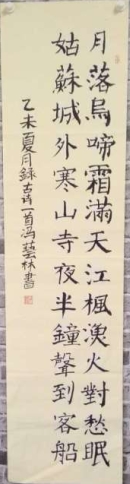 月落烏啼霜滿天江楓漁火對愁眠
姑蘇城外寒山寺夜半鐘聲到客船
乙未夏月録古诗一首冯藝林書